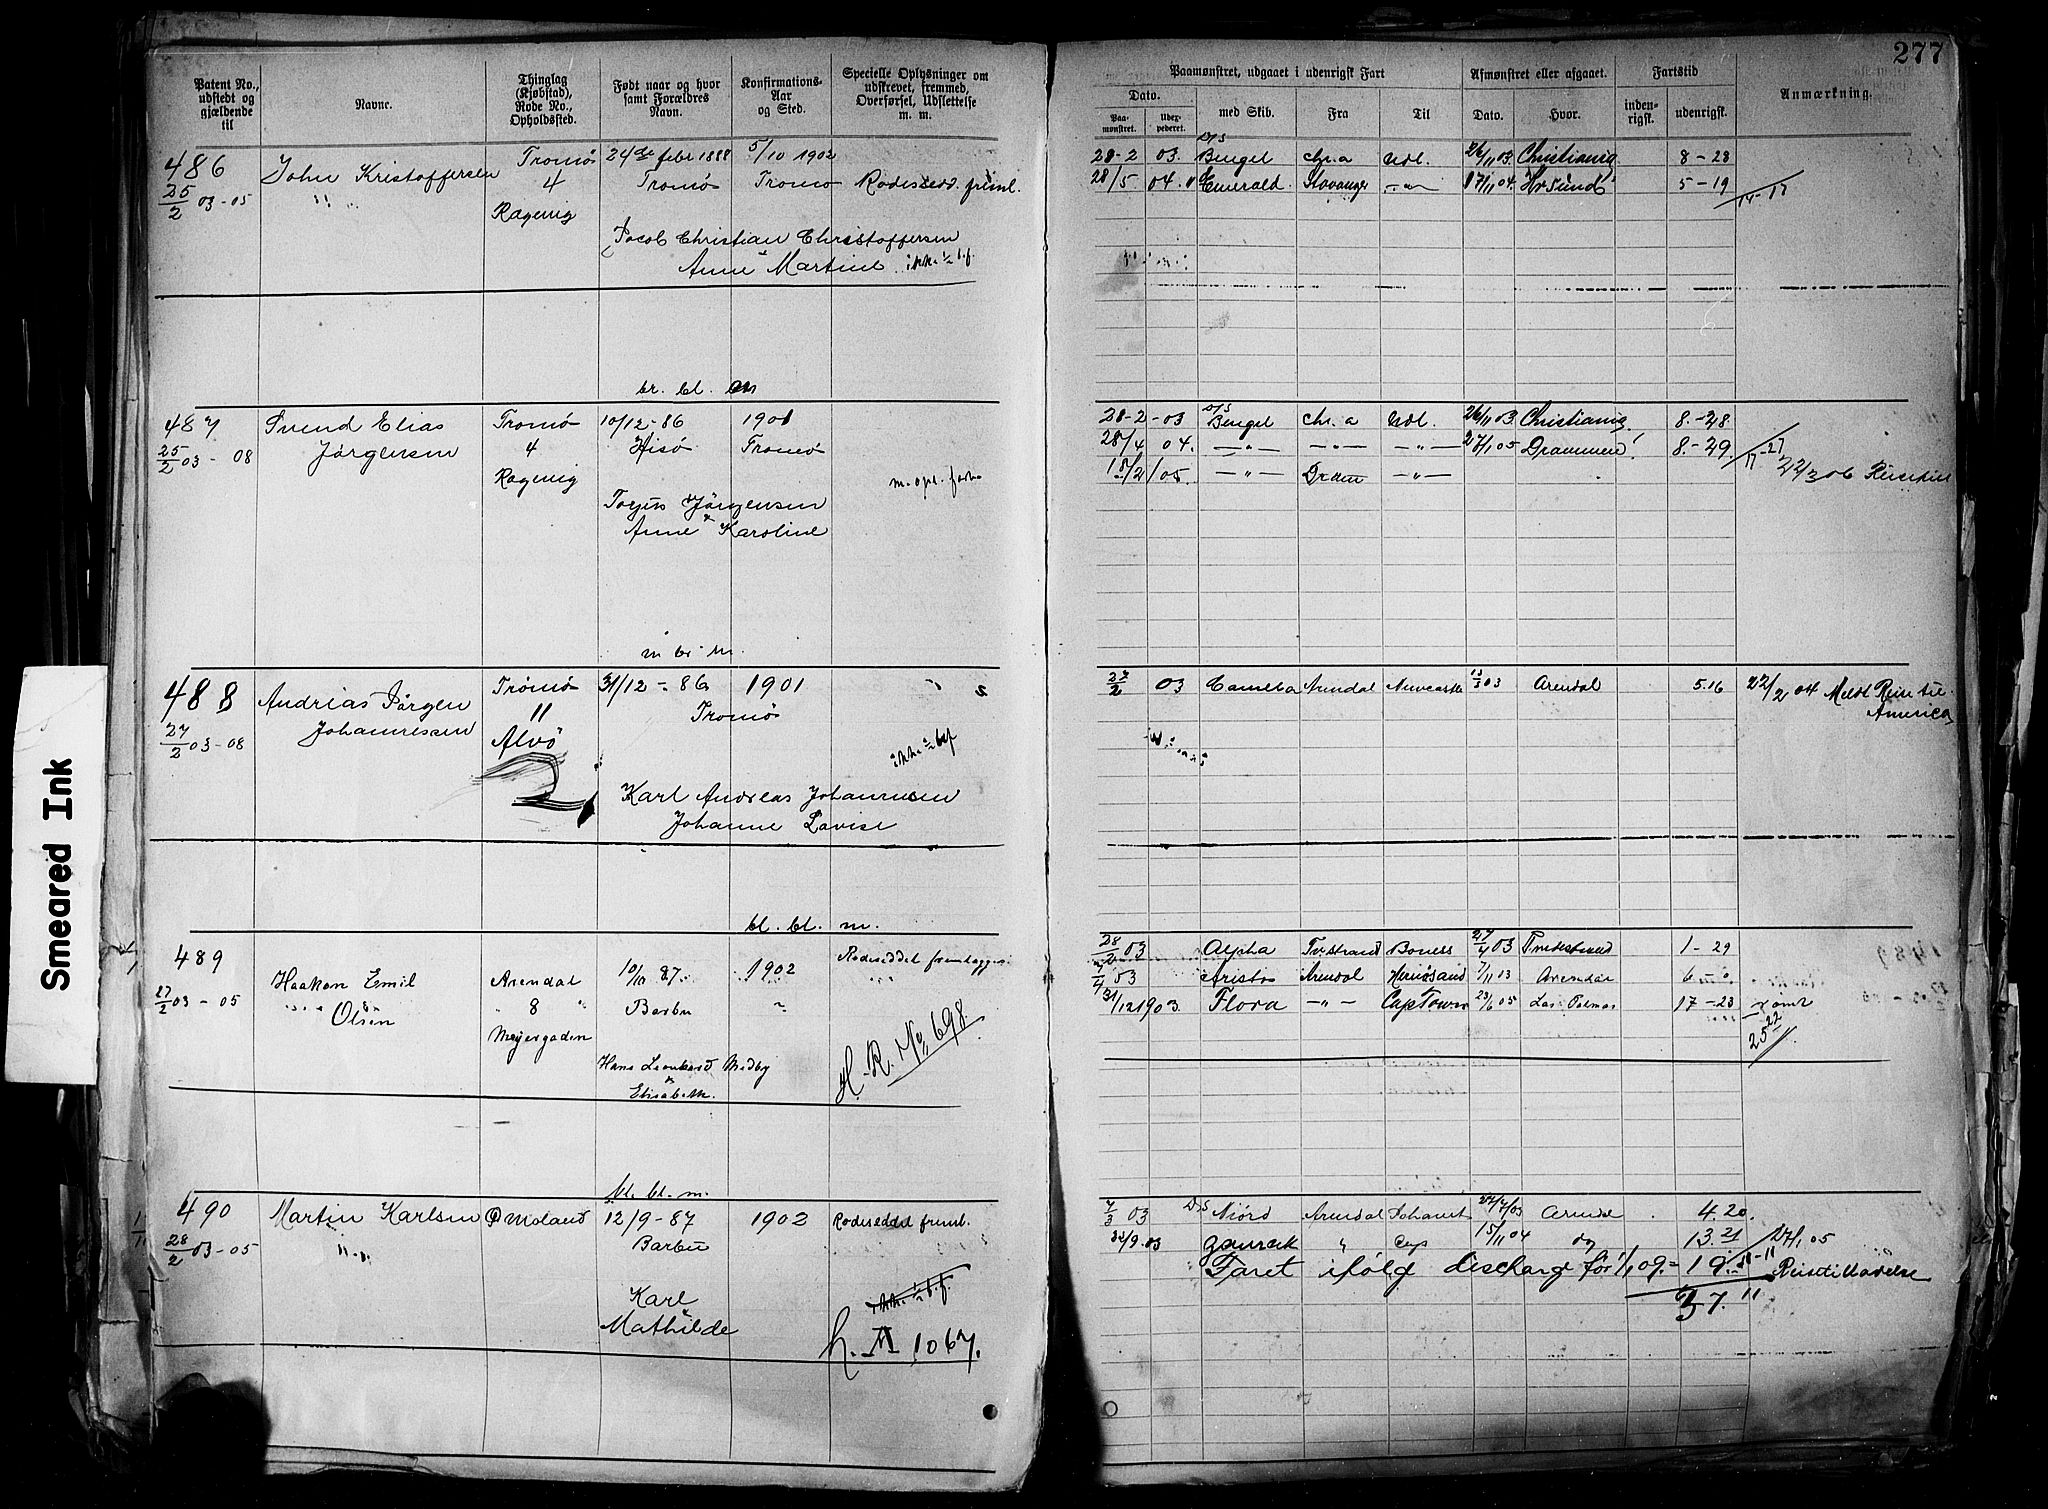 277
Patent No., udstedt og gjældende til
Navne.
Thinglag (Kjøbstad), Rode No., Opholdssted.
Født naar og hvor samt Forældres Navn.
Konfirmations-Aar og Sted.
Specielle Oplysninger om udskrevet, fremmed, Overførsel, Udslettelse m. m.
Paamønstret, udgaaet i udenrigsk Fart
Afmønstret eller afgaaet.
Fartstid
Anmærkning.
Dato.
med Skib.
Fra
Til
Dato.
Hvor.
inden-rigsk.
udenrigsk.
Paa-mønstret.
Udex-pederet.
486 John Kristoffersen Tromø 24de febr 1888 5/10 1902
25/2 03-05 " 4 Tromø Tromø Rodesedd. freml.
Ragevig
Jacob Christian Christoffersen
Anne Martine
D/S
28-2 03. Bengel Chr.a Udl. 26/11 03. Christiania 8-28
28/5 04. " Emerald. Stavanger -"- 17/11 04. Hvsund 5-19
14-17
br. bl.
487 Svend Elias Tromø 10/12-86 1901
25/2 03-08 Jørgensen 4 Hisø Tromø
Ragevig
Jørgensen
Anne Karoline
D/S
28-2-03 Bengel Chr.a Udl. 26/11 03. Christiania. 8.-28.
28/4 04. -"- -"- -"- 27/1 05 Drammen! 8.-29.
17-27
15/2 05. -"- Dram -"-
22/3 06
m br m.
488 Andreas Jørgen Tromø 31/12-86 1901
27/2 03-08 Johannessen 11 Tromø
Alvø
Karl Andreas Johannesen
Johanne Lovise
27/2 03 Arendal Newcastle 13/3 03 Arendal 5.16 22/2 04 Meldt Reise til
America
bl. bl. m.
489 Haakon Emil Arendal 10/11 87. 1902 Rodeseddel fremlagges.
27/2 03-05 Olsen " 8 " Barbu "
Meyergaden
Hans Leonhard Medby
Elisabeth.
H. R. No. 698.
28/2 03 Alpha Tvestrand Boness 27/4 03 1-29
03 Aristos Arendal Hernøsand 7/11 03 Arendal 6-"
31/12 1903. Flora -"- Cap Town 23/6 05 Las Palmas 17-23 rømt
25 22
bl. bl. m.
490 Martin Karlsen Ø Moland 12/9-87 1902 Rodeseddel freml.
28/2 03-05 " Barbu
Karl
Mathilde
h. II 1067.
7/3 03 D/S Njord Arendal 27/7/03 Arendal 4.20.
/9.03 " Cap 15/11 04 do 13.21 27/1 05
Faret ifølg discharge før 1/1 09 = 19.-11 Reisetilladelse
37. 11
Smeared Ink